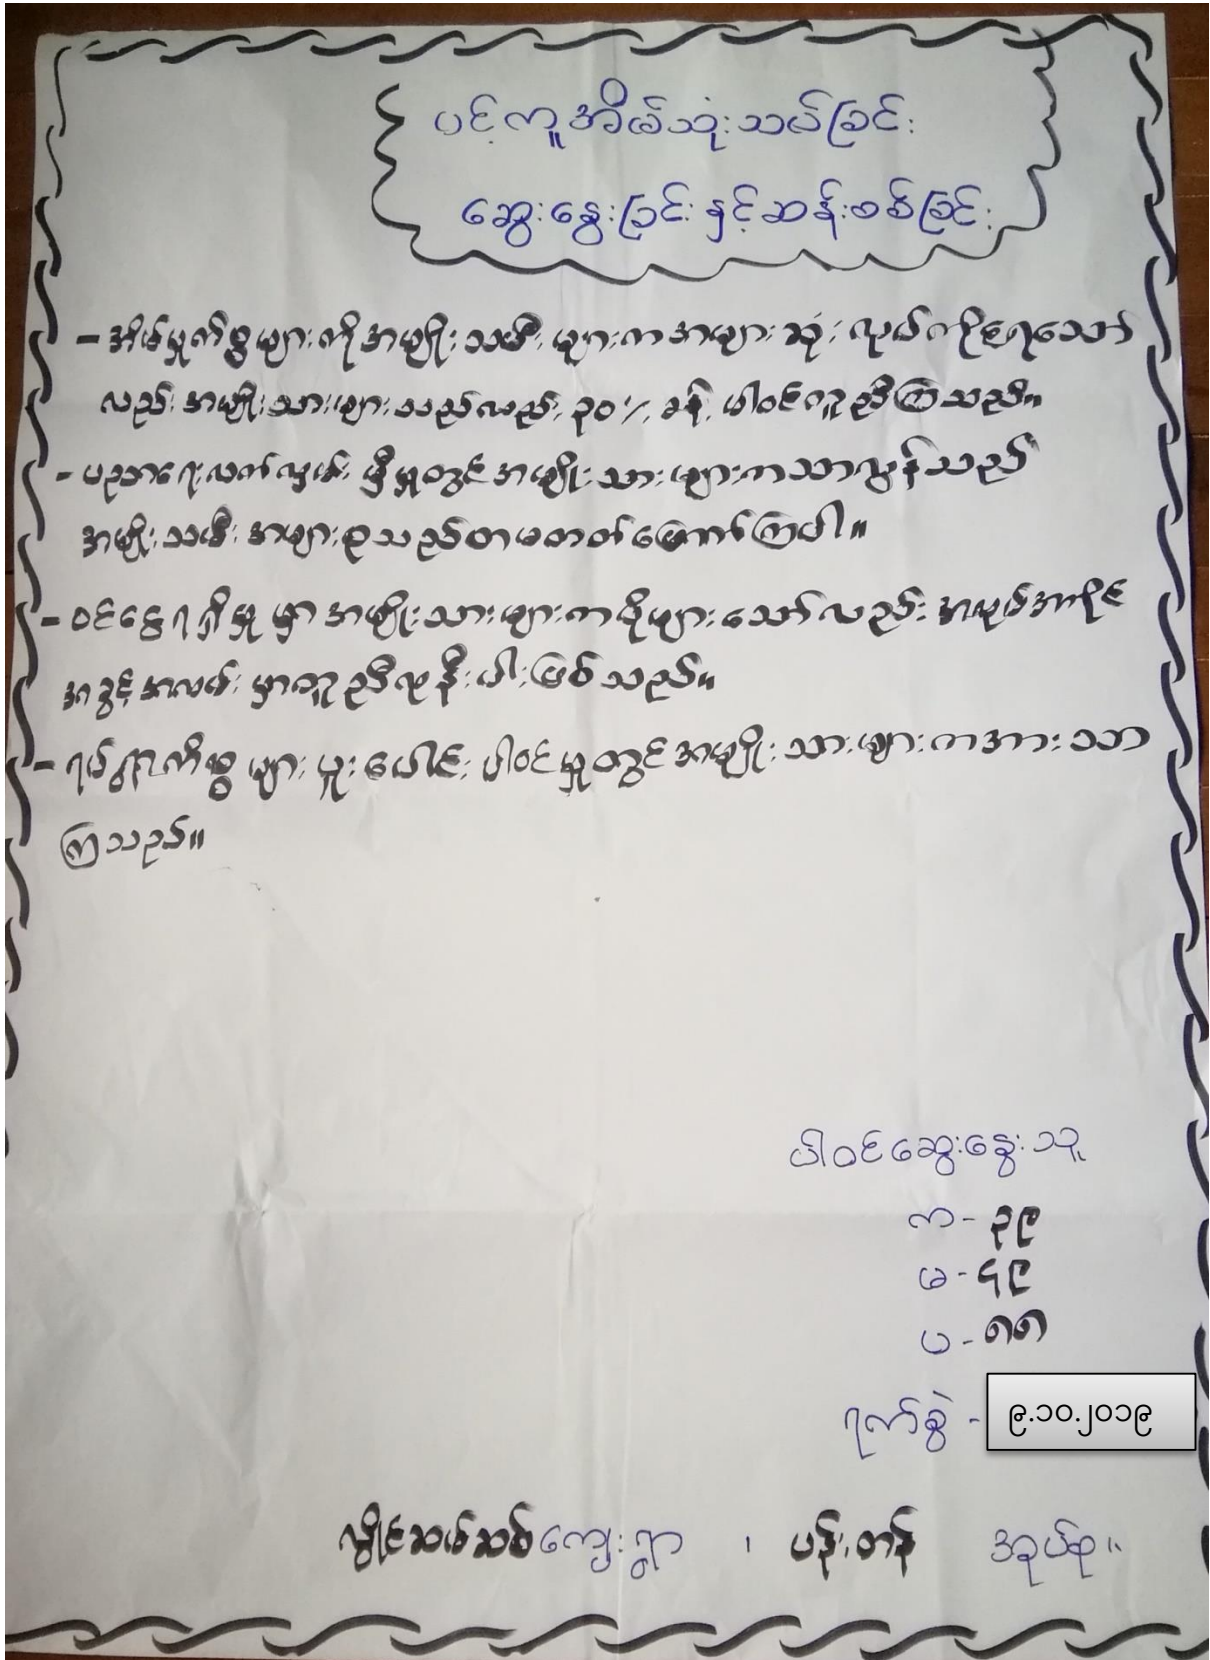 ပင့်ကူအိမ်သုံးသပ်ခြင်း
ဆွေးနွေးခြင်းနှင့်ဆန်းစစ်ခြင်း
- အိမ်မှုကိစ္စများကိုအမျိုးသမီးများကအများဆုံးလုပ်ကိုင်ရသော်
လည်းအမျိုးသားများသည်လည်း ၃၀% ခန့်ပါဝင်ကူညီကြသည်။
- ပညာရေးလက်လှမ်းမှီမှုတွင်အမျိုးသားများကသာလွန်သည်
အမျိုးသမီးအများစုသည်တမတတ်မြောက်ကြပါ။
- ဝင်ငွေရရှိမှုမှာအမျိုးသားများကပိုများသော်လည်းအလုပ်အကိုင်
အခွင့်အလမ်းမှာတူညီလုနီးပါးဖြစ်သည်။
- ရပ်ရွာကိစ္စများပူးပေါင်းပါဝင်မှုတွင်အမျိုးသားများကအားသာ
ကြသည်။
ပါဝင်ဆွေးနွေးသူ
က - ၃၉
မ - ၄၉
ပ - ၈၈
ရက်စွဲ - ၉.၁၀.၂၀၁၉
လှိုင်ဆပ်ဆစ်ကျေးရွာ ၊ ပန်းတန် အုပ်စု။